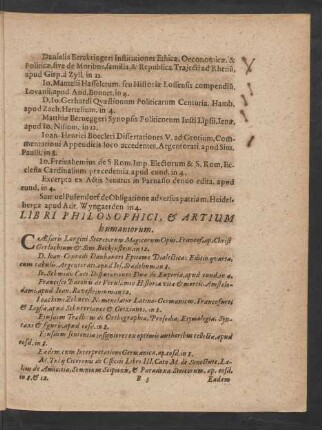 Danielis Berckringeri Institutiones Ethicæ, Oeconomicæ, &
Politicæ, sive de Moribus, familia & Republica. Trajecti ad Rhenū,
apud Gisp. à Zyll. in 12.
Io. Mantelii Hasseletum. seu Historiæ Lossensis compendiū,
Lovanii, apud And. Bouvet. in 4.
D. Io. Gerhardi Quæstionum Politicarum Centuria. Hamb.
apud Zach. Hertelium. in 4.
Matthiæ Berneggeri Synopsis Politicorum Justi Lipsii, Ienæ,
apud Io. Nisium, in 12.
Ioan. Henrici Boecleri Dissertationes V. ad Grotium, Com-
mentationi Appendicis loco accedentes, Argentorati. apud Sim.
Paulli. in 8.
Io. Freinshemius de S. Rom. Imp. Electorum & S. Rom. Ec-
clesiæ Cardinalium præcedentia apud eund. in 4.
Excerpta ex Actis Senatus in Parnasso denuo edita. apud
eund. in 4.
Samuel Pufendorf de Obligatione adversus patriam. Heidel-
bergæ apud Adr. Wyngaerden in 4.
LIBRI PHILOSOPHICI, & ARTIUM
humaniorum.
Cæsaris Longini Trinum Magicum Opus. Francof. ap. Christ
Gerlachium & Sim. Beckenstein. in 12.
D. Ioan Conradi Danhaueri Epitome Dialectica. Editio quarta,
cum tabulis. Argentorati. apud Ios. Stadelium in 8.
Io. Schmidii Coss Dissertationes Duæ de Emporia, apud eund. in 4.
Francisci Baconis de Verulamio Historia vitæ & mortis. Amstelo-
dami, apud Ioan. Ravesteinium in 12.
Ioachim. Zehneri Nomenclator Latino-Germanicus. Francofurti
& Lipsiæ. apud Schnertzium & Gotzium. in 8.
Ejusdem Tractatus de Orthographia, Prosodia, Etymologia, Syn-
taxi & figuris. apud eosd. in 8.
Ejusdem sententiæ insigniores ex optimis authoribus collectæ, apud
eosd. in 8.
Eædem cum Interpretatione Germanica, ap. eosd. in 8.
M. Tulii Ciceronis de Officiis Libri III. Cato M. de Senectute, Læ-
lius de Amicitia, Somnium Scipionis, & Paradoxa Stoicorum. ap. eosd.
in 8. & 12.
B 3
Eædem